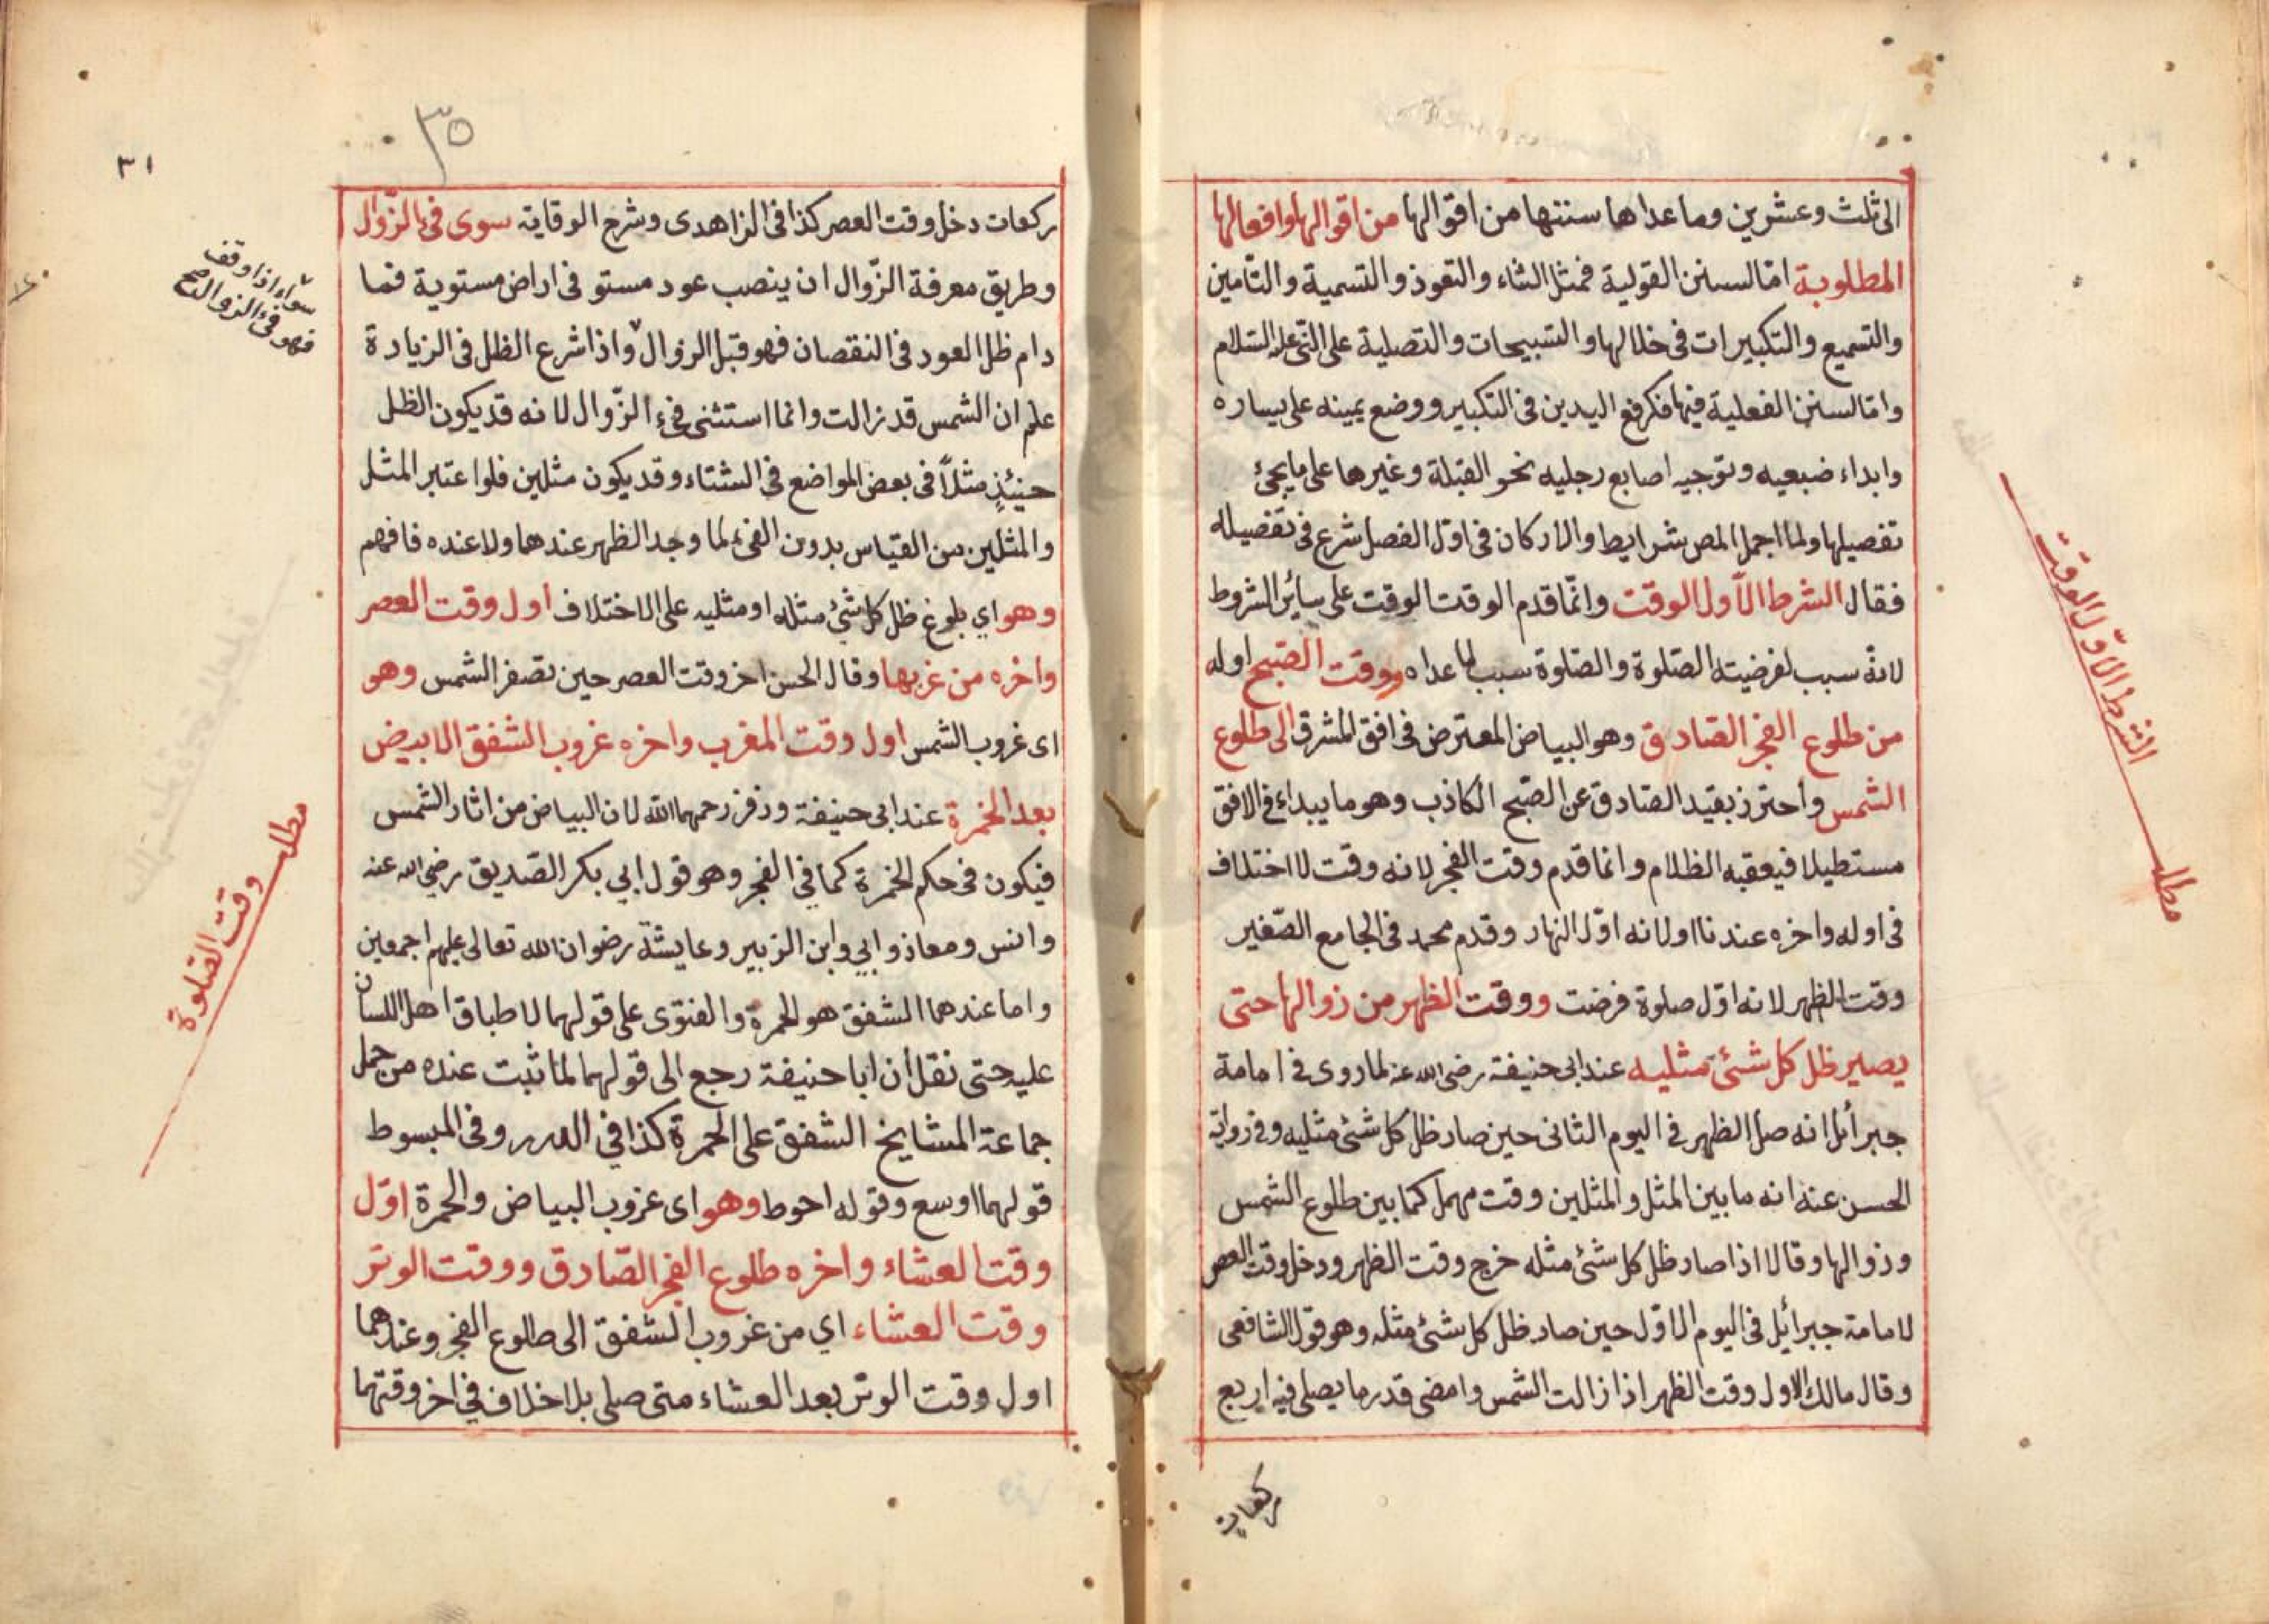 الى ثلث وعشرين وما عداها سننها من اقوالها من اقوالها وافعالها
المطلوبة اما السنن القولية فمثل الثناء والتعوذ والتسمية والتأمين
والتسميع والتكبيرات في خلالها والتسبيحات والتصلية على النبي عليه السلام
واما السنن الفعلية فيها فكرفع اليدين في التكبير ووضع يمينه على يساره
وابداء ضبعيه وتوجيه اصابع رجليه نحو القبلة وغيرها على ما يجئ
تفصيلها ولما اجمل المص شرايط والاركان في اول الفصل شرع في تفصيله
فقال الشرط الاول الوقت وانما قدم الوقت الوقت على سائر الشروط
لانه سبب لفرضيته الصلوة والصلوة سبب لما عداه ووقت الصبح اوله
من طلوع الفجر الصادق وهو البياض المعترض في افق المشرق الى طلوع
الشمس واحترز بقيد الصادق عن الصبح الكاذب وهو ما يبداء في الافق
مستطيلا فيعقبه الظلام وانما قدم وقت الفجر لانه وقت لا اختلاف
في اوله واخره عندنا اولانه اول النهار وقدم محمد في الجامع الصغير
وقت الظهر لانه اول صلوة فرضت ووقت الظهر من زوالها حتى
يصير ظل كل شئ مثليه عند ابى حنيفة رضى الله عنه لما روى في امامة
جبرأيل انه صلى الظهر في اليوم الثاني حين صار ظل كل شئ مثليه وفي رواية
الحسن عنه انه ما بين المثل والمثلين وقت مهمل كما بين طلوع الشمس
وزوالها وقالا اذا صار ظل كل شئ مثله خرج وقت الظهر ودخل وقت العصر
لامامة جبرأيل في اليوم الاول حين صار ظل كل شئ مثله وهو قول الشافعى
وقال مالك الاول وقت الظهر اذا زالت الشمس وامضى قدر ما يصلى فيه اربع
ركعات
مطلب الشرط الاول الوقت
٣٥
٣١
ركعات دخل وقت العصر كذا في الزاهدى وشرح الوقاية سوى فئ الزوال
وطريق معرفة الزوال ان ينصب عود مستو في اراض مستوية فما
دام ظل العود في النقصان فهو قبل الزوال واذا شرع الظل في الزيادة
علم ان الشمس قد زالت وانما استثنى فئ الزوال لانه قد يكون الظل
حينئذ مثلا في بعض المواضع في الشتاء وقد يكون مثلين فلو اعتبر المثل
والمثلين من القياس بدون الفئ لما وجد الظهر عندهما ولا عنده فافهم
وهو اي بلوغ ظل كل شئ مثله او مثليه على الاختلاف اول وقت العصر
واخره من غربها وقال الحسن اخر وقت العصر حين تصفر الشمس وهو
اى غروب الشمس اول وقت المغرب واخره غروب الشفق الابيض
بعد الحمرة عند ابى حنيفة وزفر رحمهما الله لان البياض من اثار الشمس
فيكون في حكم الحمرة كما في الفجر وهو قول ابي بكر الصديق رضي الله عنه
وانس ومعاذ وابي وابن الزبير وعايشة رضوان الله تعالى عليهم اجمعين
واما عندهما الشفق هو الحمرة والفتوى على قولهما لاطباق اهل اللسان
عليه حتى نقل ان ابا حنيفة رجع الى قولهما لما ثبت عنده من حمل
جماعة المشايخ الشفق على الحمرة كذا في الدرر وفي المبسوط
قولهما اوسع وقوله احوط وهو اى غروب البياض والحمرة اول
وقت العشاء واخره طلوع الفجر الصادق ووقت الوتر
وقت العشاء اي من غروب الشفق الى طلوع الفجر وعندهما
اول وقت الوتر بعد العشاء متى صلى بلا خلاف في اخر وقتهما
سواء اذا وقف
فهو فئ الزوال صح
مطلب وقت الصلوة